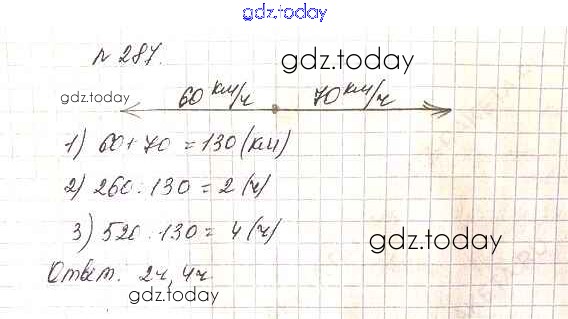 gdz.today
№ 287.
gdz.today
gdz.today
60 км/ч 70 км/ч
1) 60+70 = 130 (км)
2) 260 : 130 = 2 (ч)
3) 520 : 130 = 4 (ч)
gdz.today
Ответ. 2ч, 4ч
gdz.today